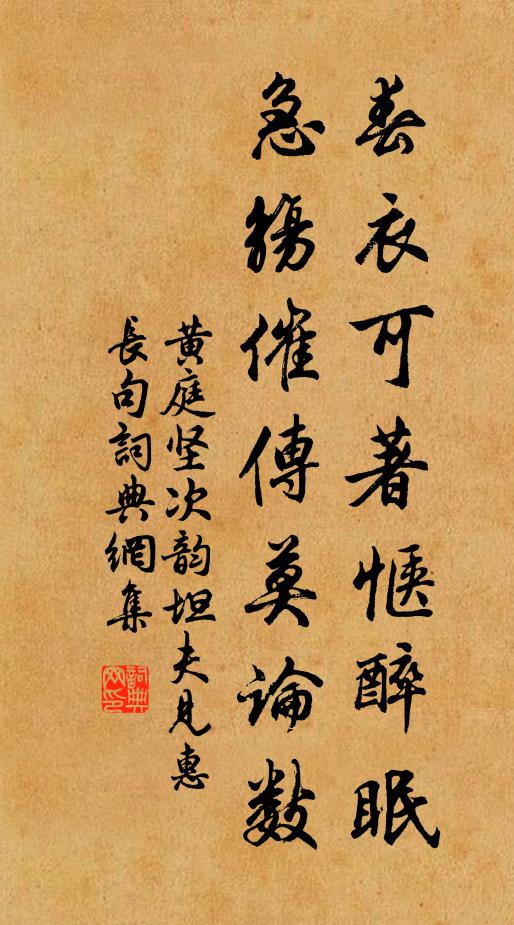 春衣可著愜醉眠
急觴催傳莫論數
黄庭坚次韵坦夫見惠
長句詞典網集
詞典
网印